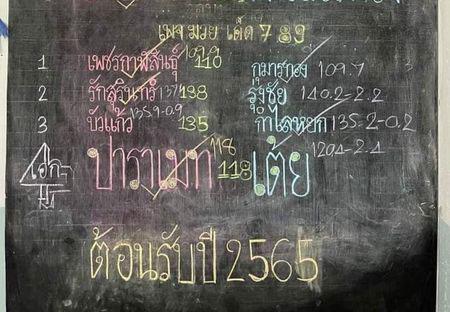 เพจ มวย เด็ด 789
109.9
1 เพชรกาฬสินธุ์ 110 กุมารทอง 109.7
2 รักสุรินทร์ 137 138 รุ่งชัย 140.2-2.2
135.9-0.9
3 บัวแก้ว 135 กำไลหยก 135.2-0.2
118 120.4-2.4
เอก ปาราเมท 118 เต้ย
ต้อนรับปี 2565